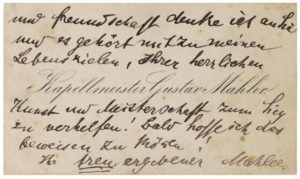 und Freundschaft denke ich an Sie
und es gehört mit zu meinen
Lebenszielen, Ihrer herrlichen
Kapellmeister Gustav Mahler
Kunst und Meisterschaft zum Sieg
zu verhelfen! Bald hoffe ich das
beweisen zu können!
Ihr treu ergebener Mahler